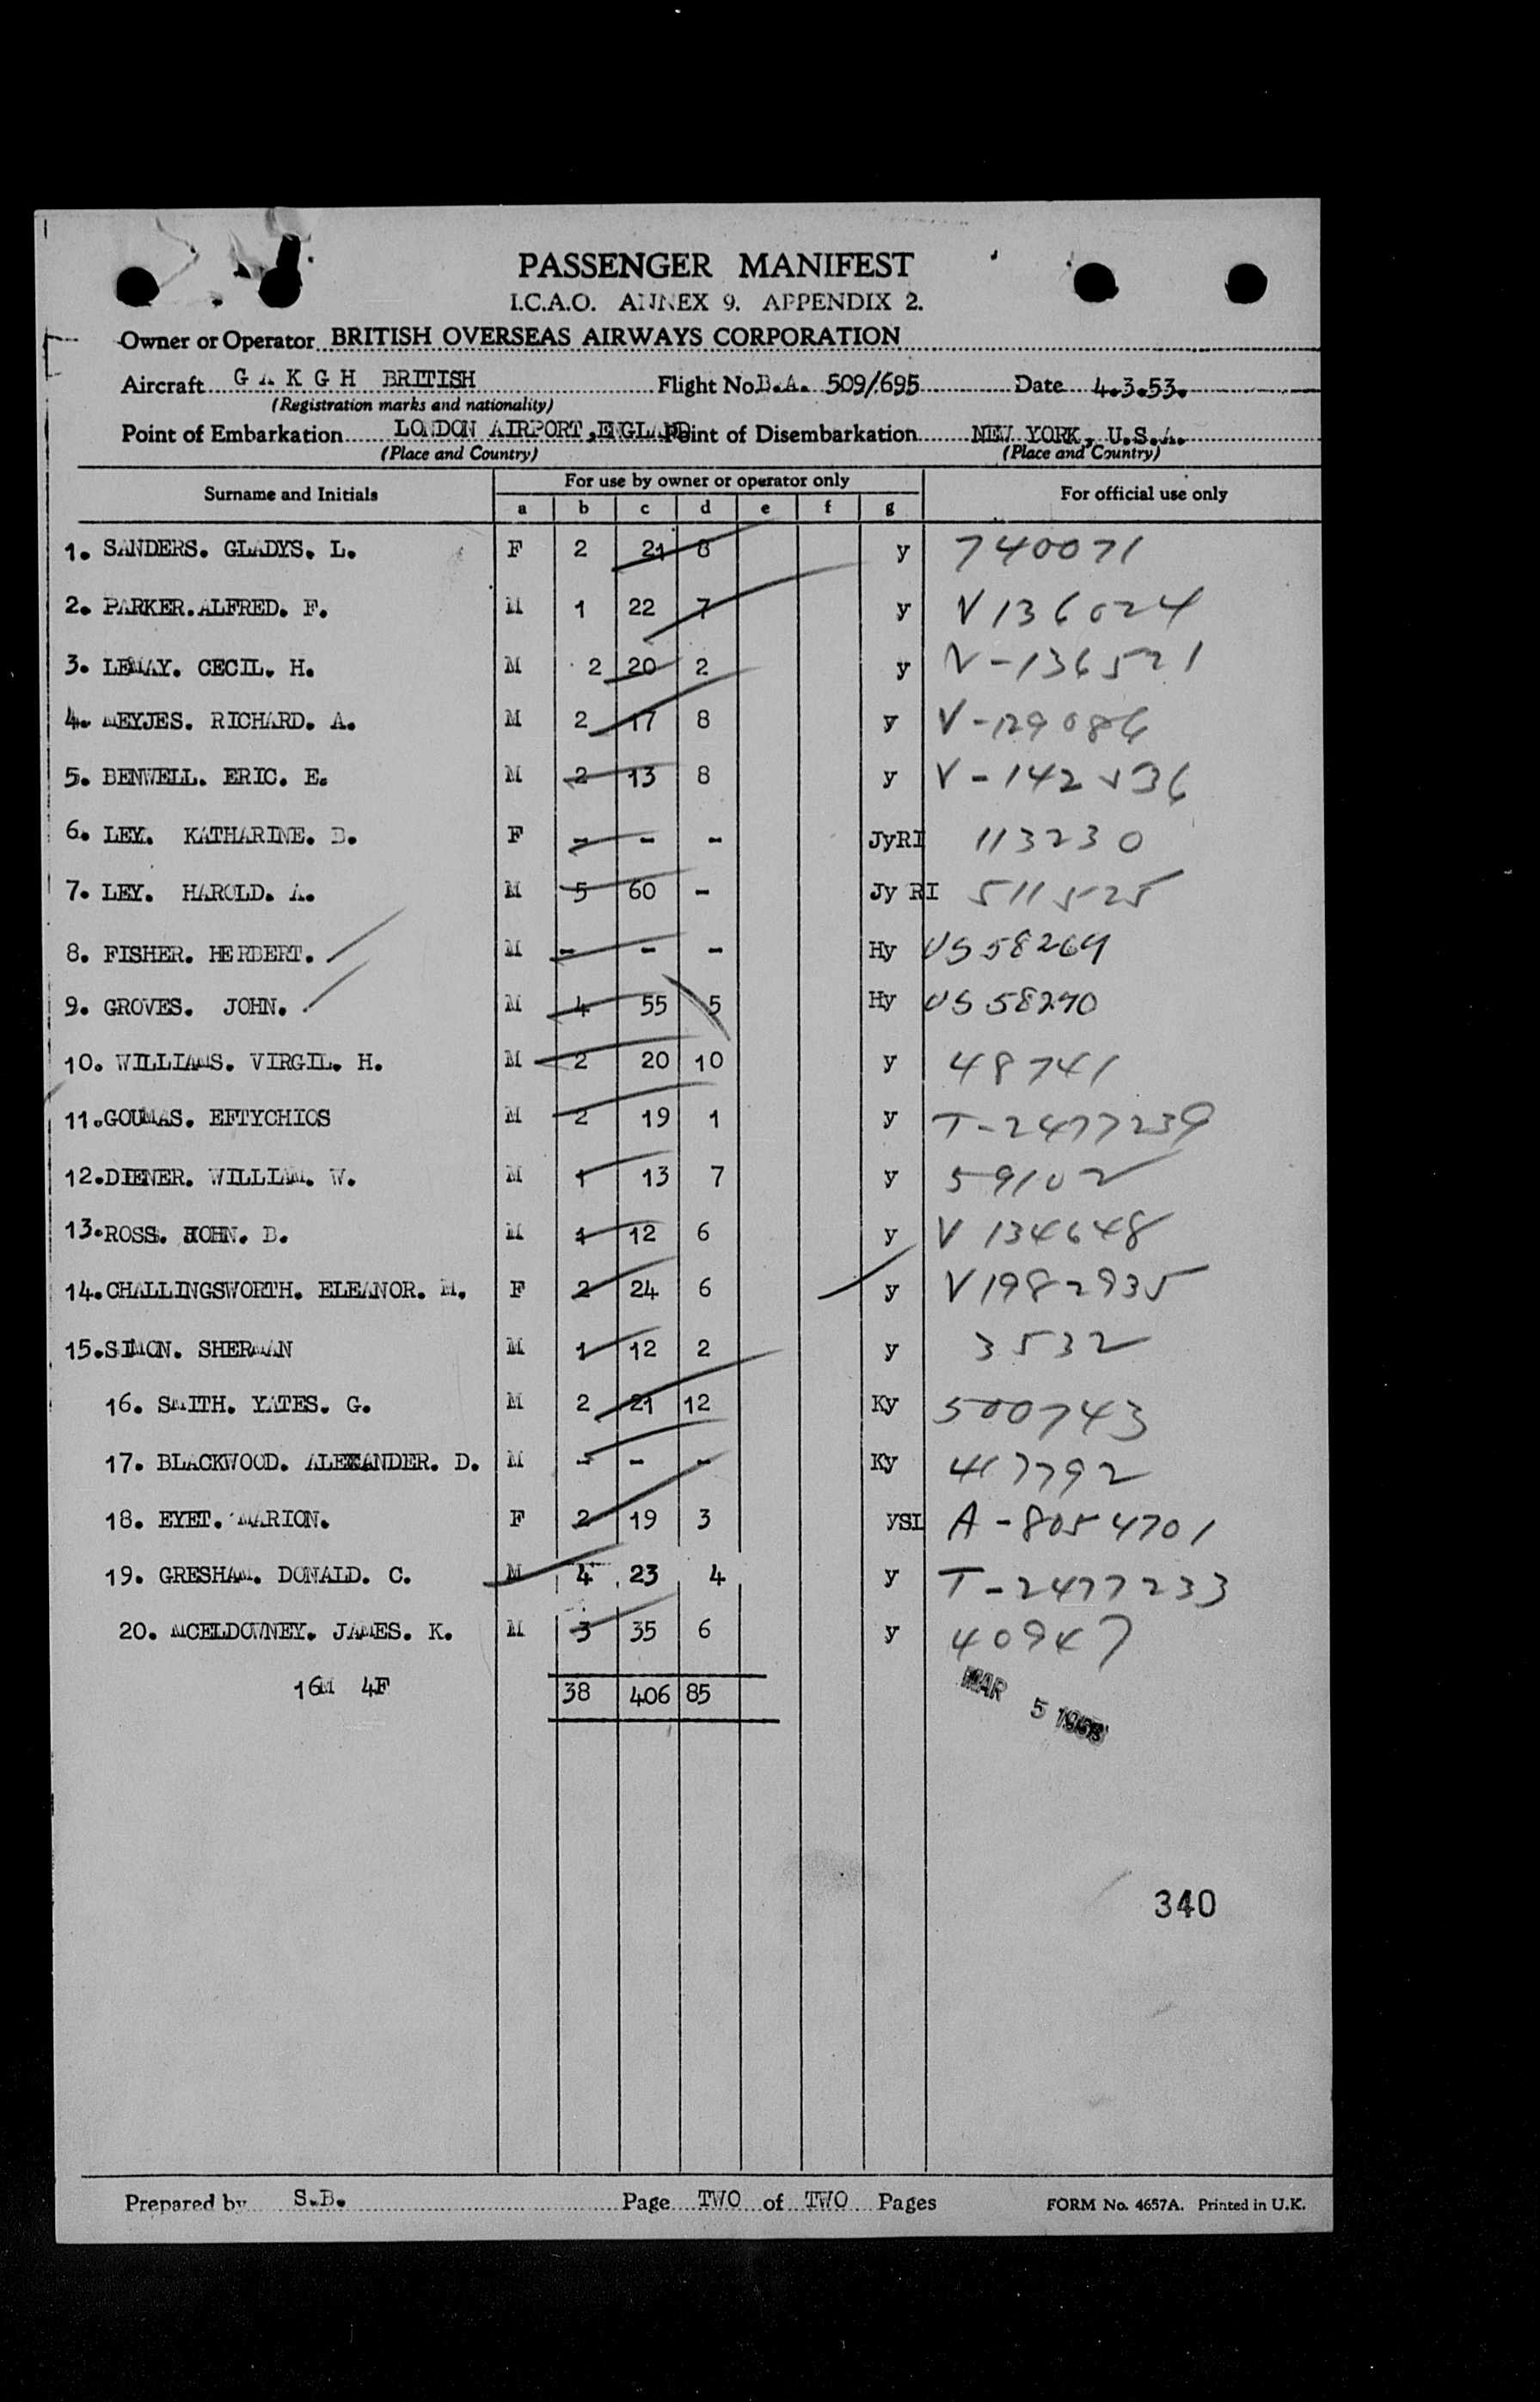 PASSENGER MANIFEST
I.C.A.O. ANNEX 9. APPENDIX 2.
Owner or Operator BRITISH OVERSEAS AIRWAYS CORPORATION
Aircraft G A K G H BRITISH Flight No. B.A. 509/695 Date 4.3.53.
(Registration marks and nationality)
Point of Embarkation LONDON AIRPORT, ENGLAND Point of Disembarkation NEW YORK, U.S.A.
(Place and Country) (Place and Country)
Surname and Initials For use by owner or operator only For official use only
a b c d e f g
1. SANDERS. GLADYS. L. F 2 21 8 y 740071
2. PARKER.ALFRED. F. M 1 22 7 y V136024
3. LEMAY. CECIL. H. M 2 20 2 y V-136521
4. MEYJES. RICHARD. A. M 2 17 8 y V-129086
5. BENWELL. ERIC. E. M 2 13 8 y V-142536
6. LEY. KATHARINE. B. F - - - JyRI 113230
7. LEY. HAROLD. A. M 5 60 - Jy RI 511525
8. FISHER. HERBERT. M - - - Hy US58269
9. GROVES. JOHN. M 4 55 5 Hy US58290
10. WILLIAMS. VIRGIL. H. M 2 20 10 y 48741
11.GOUMAS. EFTYCHIOS M 2 19 1 y T-2477239
12.DIENER. WILLIAM. W. M 1 13 7 y 59102
13.ROSS. JOHN. B. M 1 12 6 y V 134648
14.CHALLINGSWORTH. ELEANOR. M. F 2 24 6 y V1982935
15.SIMON. SHERMAN M 1 12 2 y 3532
16. SMITH. YATES. G. M 2 21 12 Ky 500743
17. BLACKWOOD. ALEXANDER. D. M - - - Ky 417792
18. EYET. MARION. F 2 19 3 ySI A-8054701
19. GRESHAM. DONALD. C. M 4 23 4 y T-2477233
20. MCELDOWNEY. JAMES. K. M 3 35 6 y 40947
16M 4F 38 406 85
MAR 5 1953
340
Prepared by S.B. Page TWO of TWO Pages FORM No. 4657A. Printed in U.K.